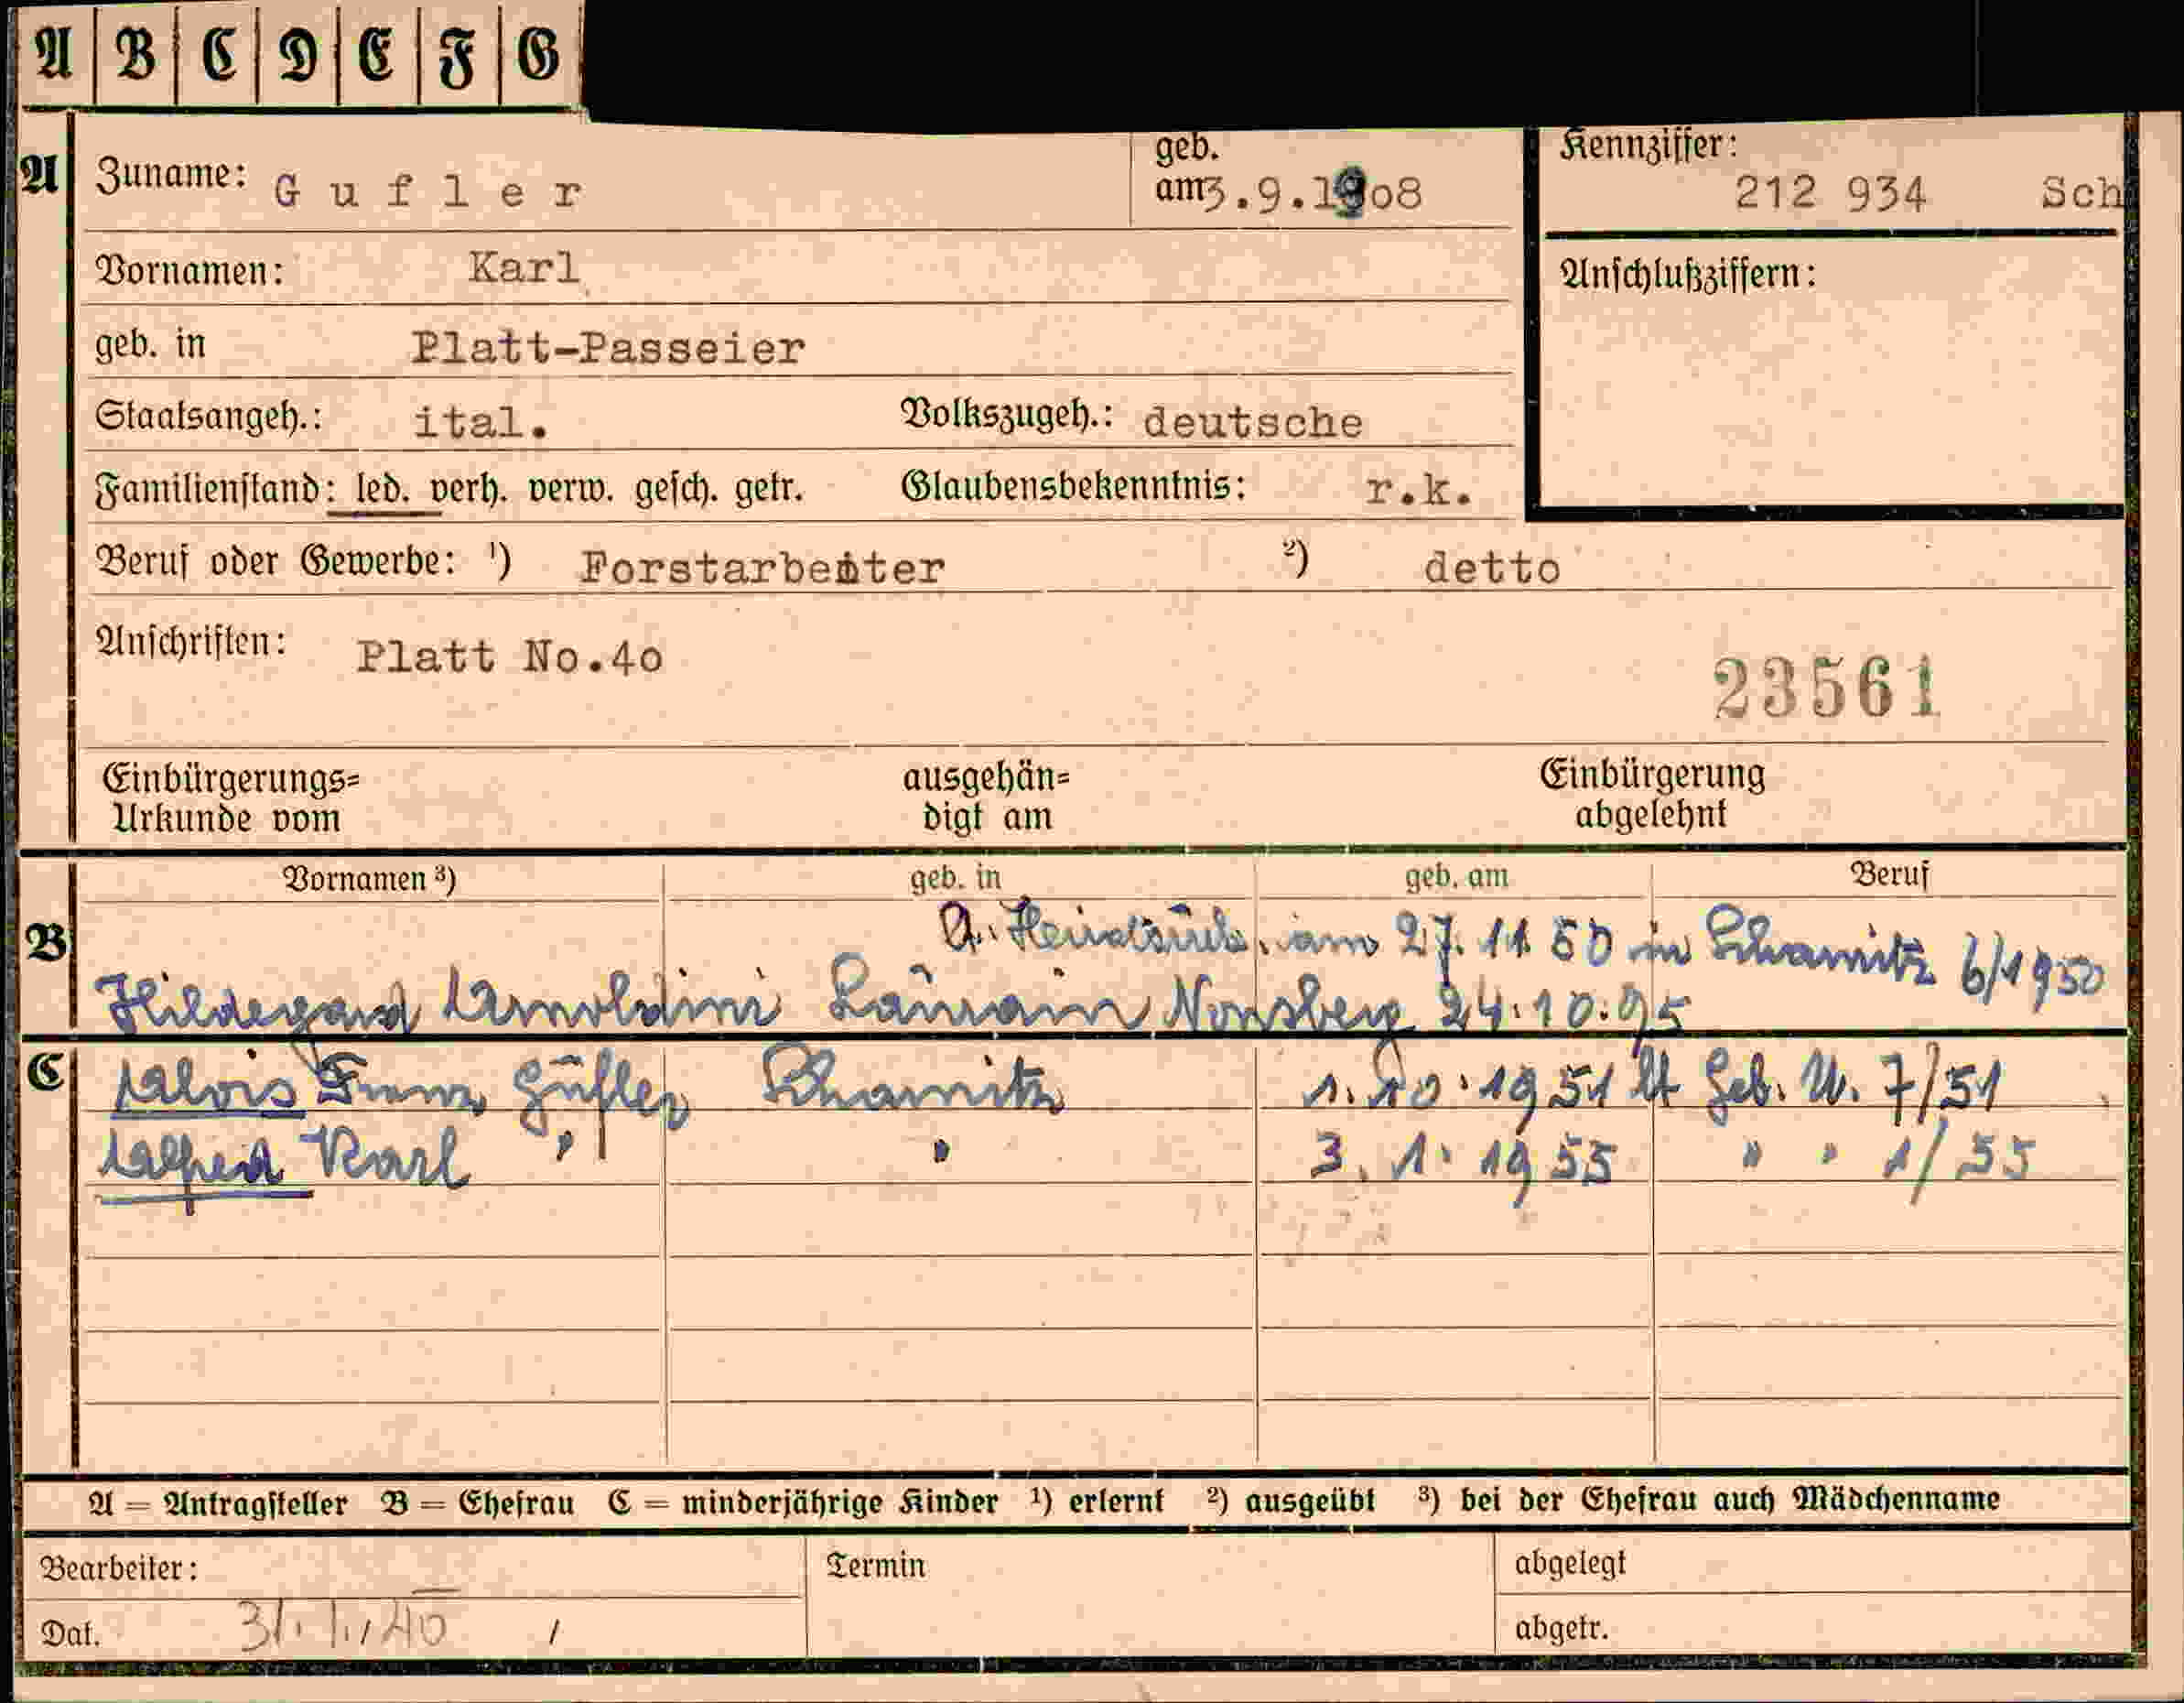 A B C D E F G
A Zuname: Gufler geb. am 3.9.1908 Kennziffer: 212 934 Sch
Vornamen: Karl Anschlußziffern:
geb. in Platt-Passeier
Staatsangeh.: ital. Volkszugeh.: deutsche
Familienstand: led. verh. verw. gesch. getr. Glaubensbekenntnis: r.k.
Beruf oder Gewerbe: ¹) Forstarbeiter ²) detto
Anschriften: Platt No.40
23561
Einbürgerungs= ausgehän= Einbürgerung
Urkunde vom digt am abgelehnt
Vornamen ³) geb. in geb. am Beruf
B am 27. 11 50 in Scharnitz 6/1950
Hildegard Arnoldini Nonsberg 24.10.
C Alois Franz Gufler Scharnitz 1. 10. 1951 lt Geb. U. 7/51
Alfred Karl " " 3. 1. 1955 " " 1/55
A = Antragsteller B = Ehefrau C = minderjährige Kinder ¹) erlernt ²) ausgeübt ³) bei der Ehefrau auch Mädchenname
Bearbeiter: Termin abgelegt
Dat. 31. 1. 40 abgetr.